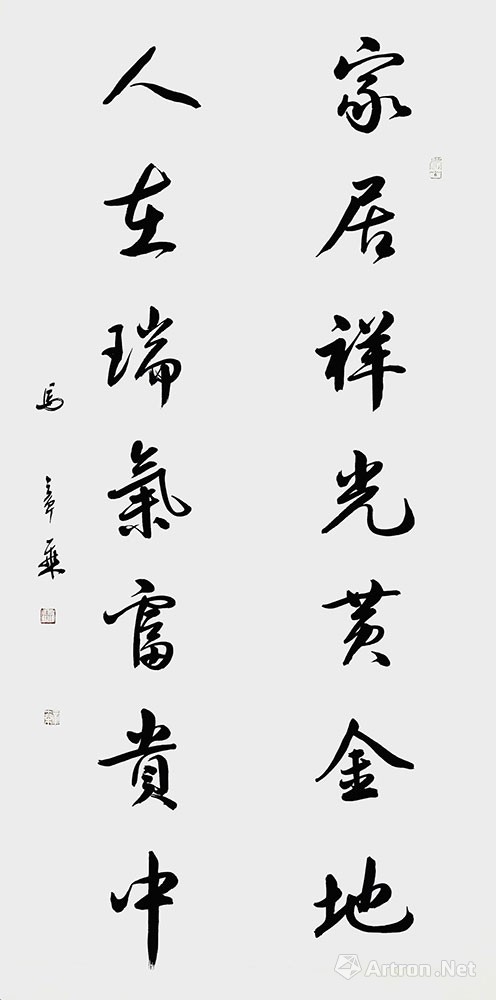 家居祥光黄金地
人在瑞氣富貴中
馬章乘
Artron.Net